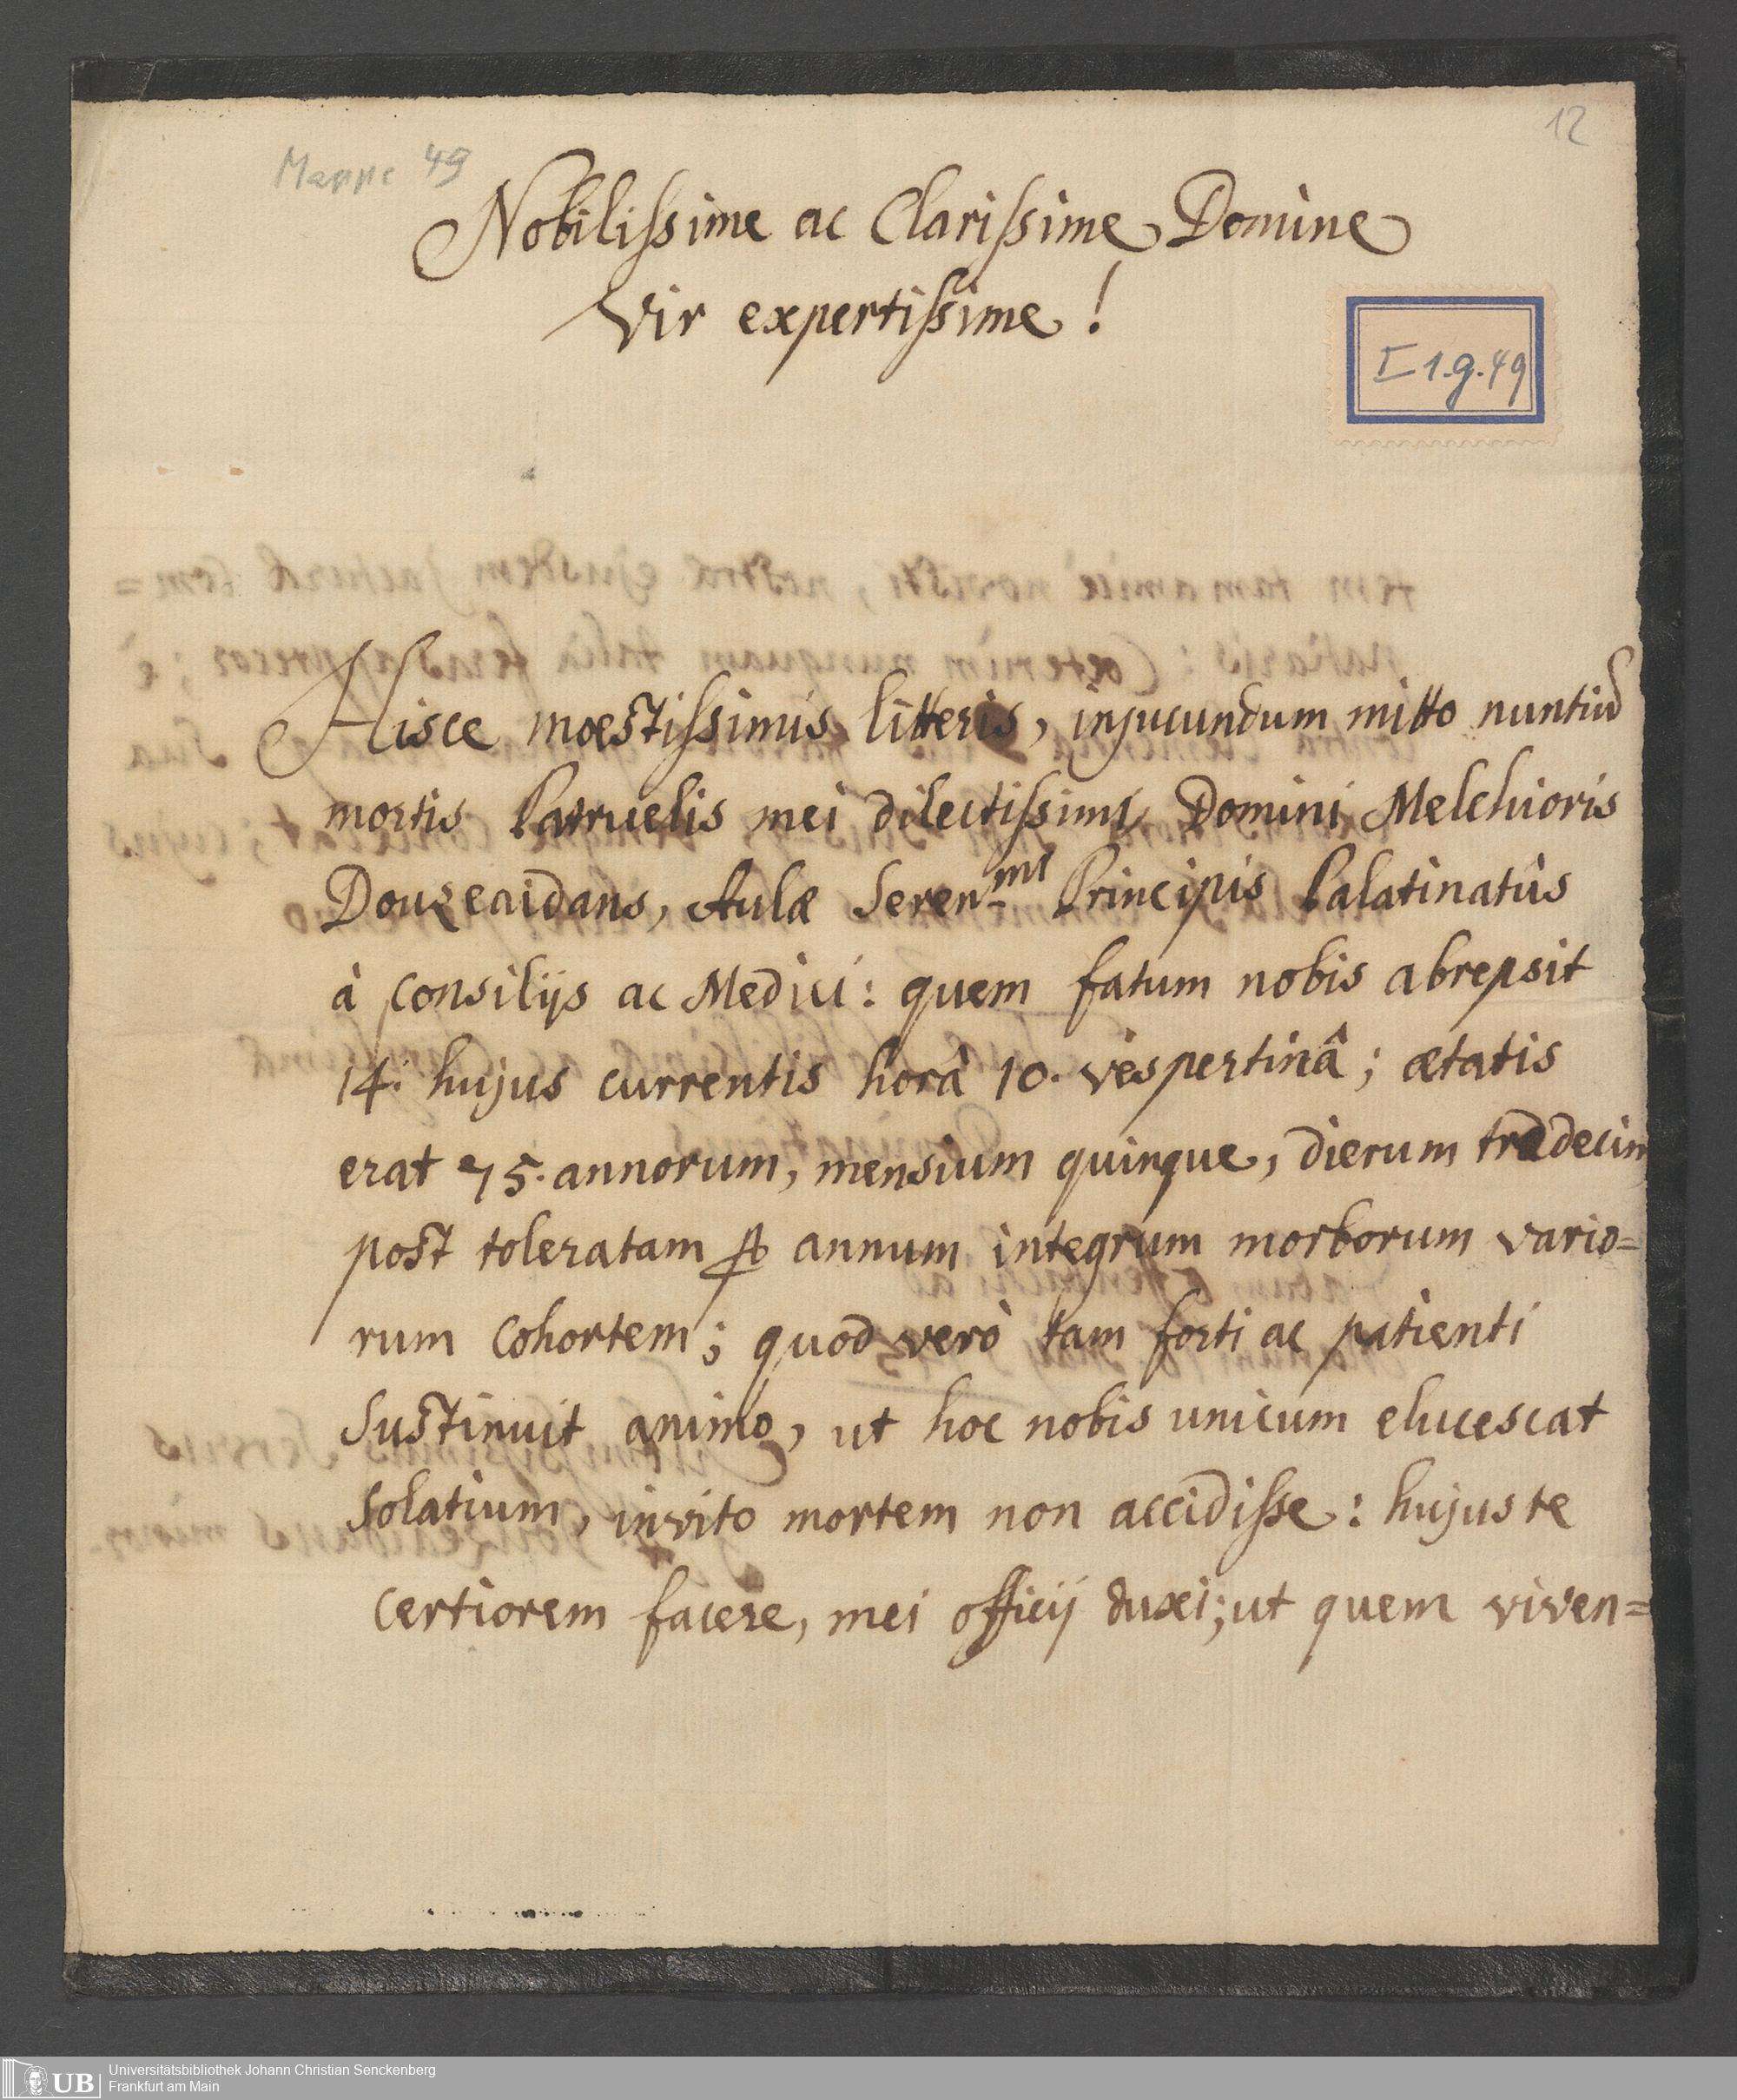 12
Mappe 49
Nobilissime ac Clarissime Domine
Vir expertissime!
I 1.g.49
Hisce mœstissimis litteris, injucundum mitto nuntiũ
mortis Patruelis mei dilectissimi Domini Melchioris
Douzeaidans, Aulæ Seren.mi Principis Palatinatûs
à consilijs ac Medici: quem fatum nobis abrepsit
14. hujus currentis horâ 10. vespertinâ; ætatis
erat 75. annorum, mensium quinque, dierum tredecim
post toleratam ꝑ annum integrum morborum vario=
rum cohortem; quod verò tam forti ac patienti
sustinuit animo, ut hoc nobis unicum elucescat
solatium, invito mortem non accidisse: hujus te
certiorem facere, mei officij duxi; ut quem viven=
UB
Universitätsbibliothek Johann Christian Senckenberg
Frankfurt am Main